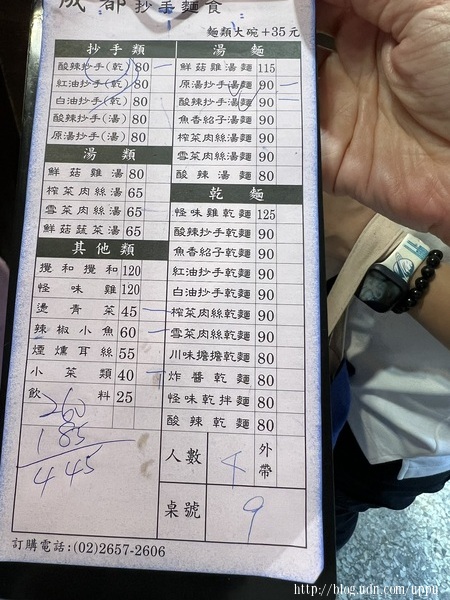 成都抄手麵食
麵類大碗+35元
抄手類
酸辣抄手(乾) 80
紅油抄手(乾) 80
白油抄手(乾) 80
酸辣抄手(湯) 80
原湯抄手(湯) 80
湯類
鮮菇雞湯 80
榨菜肉絲湯 65
雪菜肉絲湯 65
鮮菇蔬菜湯 65
其他類
攪和攪和 120
怪味雞 120
燙青菜 45
辣椒小魚 60
煙燻耳絲 55
小菜類 40
飲料 25
260
185
445
湯麵
鮮菇雞湯麵 115
原湯抄手湯麵 90
酸辣抄手湯麵 90
魚香紹子湯麵 90
榨菜肉絲湯麵 90
雪菜肉絲湯麵 90
酸辣湯麵 80
乾麵
怪味雞乾麵 125
酸辣抄手乾麵 90
魚香紹子乾麵 90
紅油抄手乾麵 90
白油抄手乾麵 90
榨菜肉絲乾麵 90
雪菜肉絲乾麵 90
川味擔擔乾麵 80
炸醬乾麵 80
怪味乾拌麵 80
酸辣乾麵 80
人數
外帶
桌號 9
訂購電話:(02)2657-2606
http://blog.udn.com/uppu